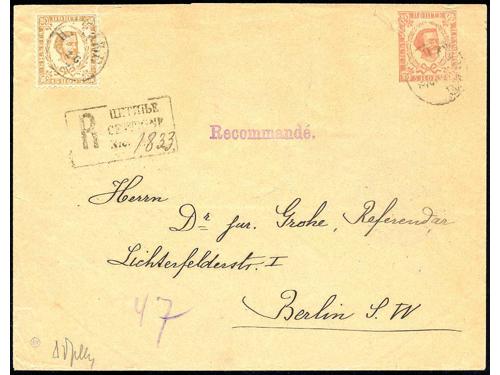 R
ЦЕТИЊЕ
CETTIGNE
No. 1833
Recommandé.
Herrn
Dr jur. Grohe, Referendar
Lichterfelderstr. I
Berlin S. W
47